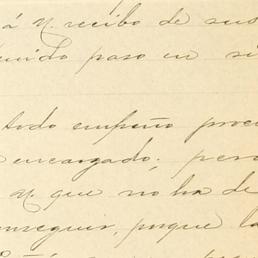 á V. recibo de sus
paso en si
todo empeño proc
encargado; pero
y que no ha de
onseguir, porque la